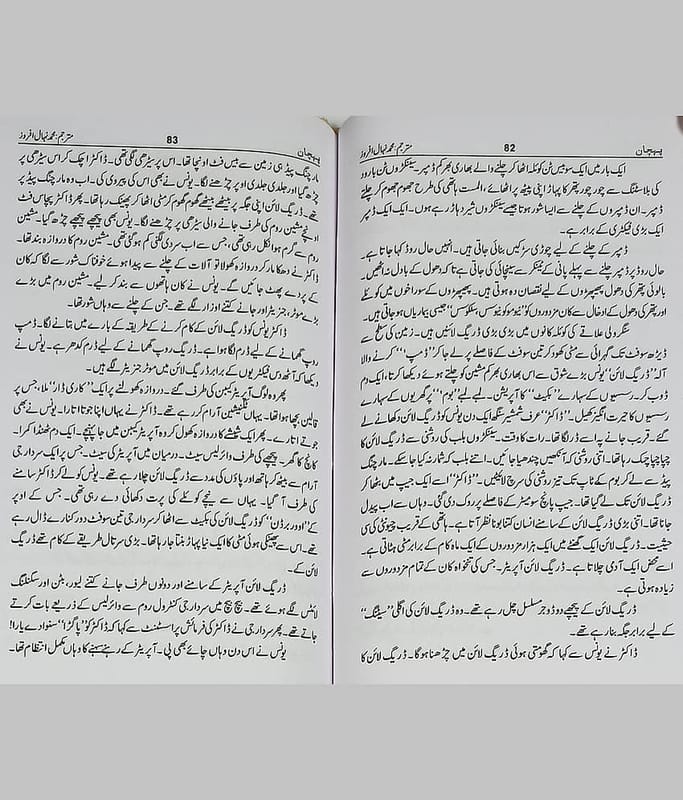 پہچان 82 مترجم: محمد نہال افروز
ایک بار میں ایک سو بیس ٹن کوئلہ اٹھا کر چلنے والے بھاری بھرکم ڈمپر۔ سینکڑوں ٹن بارود
کی بلاسٹنگ سے چور چور پتھر کا پہاڑ اپنی پیٹھ پر اٹھائے، الست ہاتھی کی طرح جھوم جھوم کر چلتے
ڈمپر۔ ان ڈمپروں کے چلنے سے ایسا شور ہوتا جیسے سینکڑوں شیر دہاڑ رہے ہوں۔ ایک ایک ڈمپر
ایک بڑی فیکٹری کے برابر ہے۔
ڈمپر کے چلنے کے لیے چوڑی سڑکیں بنائی جاتی ہیں۔ انھیں حال روڈ کہا جاتا ہے۔
حال روڈ پر ڈمپر چلنے سے پہلے پانی کے ٹینکر سے سینچائی کی جاتی ہے تا کہ دھول کے بادل نہ اٹھیں۔
بالوئی پتھر کی دھول پھیپھڑوں کے لیے نقصان دہ ہوتی ہیں۔ پھیپھڑوں کے سوراخوں میں کوئلے
اور پتھر کی دھول کے ادخال سے کان مزدوروں کو ’نیوموکونیوسس، سلکوسس‘ جیسی بیماریاں ہو جاتی ہیں۔
سنگرولی علاقے کی کوئلہ کانوں میں بڑی بڑی ڈریگ لائنیں ہیں۔ زمین کی سطح سے
ڈیڑھ سو فٹ تک گہرائی سے مٹی کھود کر تین سو فٹ کے فاصلے پر لے جا کر ”ڈمپ“ کرنے والا
آلہ ”ڈریگ لائن“ یونس بڑے شوق سے اس بھاری بھرکم مشین کو چلتے ہوئے دیکھا کرتا، ایک دم
ڈوب کر۔ رسیوں کے سہارے ”بکیٹ“ کا آپریشن۔ لمبے لمبے ”بوم“ پر گھریوں کے سہارے
رسیوں کا حیرت انگیز کھیل۔ ”ڈاکٹر“ عرف شمشیر سنگھ ایک دن یونس کو ڈریگ لائن دکھانے لے
گئے۔ قریب جانے پر اسے ڈر لگا تھا۔ رات کا وقت۔ سینکڑوں بلب کی روشنی سے ڈریگ لائن کا
چپا چپا چمک رہا تھا۔ اتنی روشنی کہ آنکھیں چندھیا جائیں۔ اتنے بلب کہ شمار نہ کیا جا سکے۔ مارچنگ
پیڈ سے لے کر بوم کے ٹاپ تک تیز روشنی کی سرچ لائٹیں۔ ”ڈاکٹر“ اسے ایک جیپ میں بٹھا کر
ڈریگ لائن تک لے گیا تھا۔ جیپ پانچ سو میٹر کے فاصلے پر روک دی گئی۔ وہاں سے اب پیدل
جانا تھا۔ اتنی بڑی ڈریگ لائن کے سامنے انسان کتنا بونا نظر آتا ہے۔ ہاتھی کے قریب چیونٹی کی سی
حیثیت۔ ڈریگ لائن ایک گھنٹے میں ایک ہزار مزدوروں کے ایک ماہ کام کے برابر مٹی ہٹاتی ہے۔
اسے محض ایک آدمی چلاتا ہے۔ ڈریگ لائن آپریٹر۔ جس کی تنخواہ کان کے تمام مزدوروں سے
زیادہ ہوتی ہے۔
ڈریگ لائن کے پیچھے دو ڈوجر مسلسل چل رہے تھے۔ وہ ڈریگ لائن کی اگلی ”سیٹنگ“
کے لیے برابر جگہ بنا رہے تھے۔
ڈاکٹر نے یونس سے کہا کہ گھومتی ہوئی ڈریگ لائن میں چڑھنا ہوگا۔ ڈریگ لائن کا
پہچان 83 مترجم: محمد نہال افروز
مارچنگ پیڈ ہی زمین سے بیس فٹ اونچا تھا۔ اس پر سیڑھی لگی تھی۔ ڈاکٹر اچک کر اس سیڑھی پر
چڑھ گیا اور جلدی جلدی اوپر چڑھنے لگا۔ یونس نے بھی اس کی پیروی کی۔ اب وہ مارچنگ پیڈ پر
تھے۔ ڈریگ لائن اپنی جگہ پر بیٹھے بیٹھے گھوم گھوم کر مٹی اٹھا کر پھینک رہا تھا۔ پھر ڈاکٹر پچاس فٹ
اونچے مشین روم کی طرف جانے والی سیڑھی پر چڑھنے لگا۔ یونس بھی پیچھے پیچھے چڑھ گیا۔ مشین
روم سے گرم ہوا نکل رہی تھی، جس سے اب سردی لگنی کم ہو گئی تھی۔ مشین روم کا دروازہ بند تھا۔
ڈاکٹر نے دھکا مار کر دروازہ کھولا تو آلات کے چلنے سے پیدا ہوئے خوفناک شور سے لگا کہ کان
کے پردے پھٹ جائیں گے۔ یونس نے کان ہاتھوں سے بند کر لیے۔ مشین روم میں بڑے
بڑے موٹر، جنریٹر اور جانے کتنے اوزار لگے تھے۔ جن کے چلنے سے وہاں شور تھا۔
ڈاکٹر یونس کو ڈریگ لائن کے کام کرنے کے طریقہ کے بارے میں بتانے لگا۔ ڈمپ
روپ گھمانے کے لیے ڈرم لگا ہوا ہے۔ ڈریگ روپ گھمانے کے لیے ڈرم کدھر ہے۔ یونس نے
دیکھا کہ آٹھ دس فیکٹریوں کے برابر ڈریگ لائن میں موٹر جنریٹر لگے ہیں۔
پھر وہ لوگ آپریٹر کیبن کی طرف گئے۔ دروازہ کھولنے پر ایک ”کاری ڈار“ ملا، جس پر
قالین بچھا ہوا تھا۔ یہاں ٹیکنیشین آرام کر رہے تھے۔ ڈاکٹر نے یہاں اپنا جوتا اتارا۔ یونس نے بھی
جوتے اتارے۔ پھر ایک شیشے کا دروازہ کھول کر وہ آپریٹر کیبن میں جا پہنچے۔ ایک دم ٹھنڈا کمرا۔
کانچ کا گھر۔ پیچھے کی طرف وائرلیس سیٹ۔ درمیان میں آپریٹر کی سیٹ۔ جس پر ایک سردار جی
آرام سے بیٹھ کر ہاتھ اور پاؤں کی مدد سے ڈریگ لائن چلا رہے تھے۔ یونس کو لے کر ڈاکٹر سامنے
کی طرف آ گیا۔ یہاں سے نیچے کوئلے کی پرت دکھائی دے رہی تھی۔ جس کے اوپر
کے ”اوور برڈن“ کو ڈریگ لائن کی بکیٹ سے اٹھا کر سردار جی تین سو فٹ دور کنارے ڈال رہے
تھے۔ اس سے پھینکی ہوئی مٹی کا ایک نیا پہاڑ بنتا جا رہا تھا۔ بڑی سرتال طریقے کے کام تھے ڈریگ
لائن کے۔
ڈریگ لائن آپریٹر کے سامنے اور دونوں طرف جانے کتنے لیور، بٹن اور سگنلنگ
لائٹس لگے ہوئے تھے۔ بیچ بیچ میں سردار جی کنٹرول روم سے وائرلیس کے ذریعے بات کرتے
جاتے تھے۔ پھر سردار جی نے ڈاکٹر کی فرمائش پر اسسٹنٹ سے کہا کہ ڈاکٹر کو ”پاگڑا“ سنوا دے یارا!
یونس نے اس دن وہاں چائے بھی پی۔ آپریٹر کے رہنے سہنے کا وہاں مکمل انتظام تھا۔